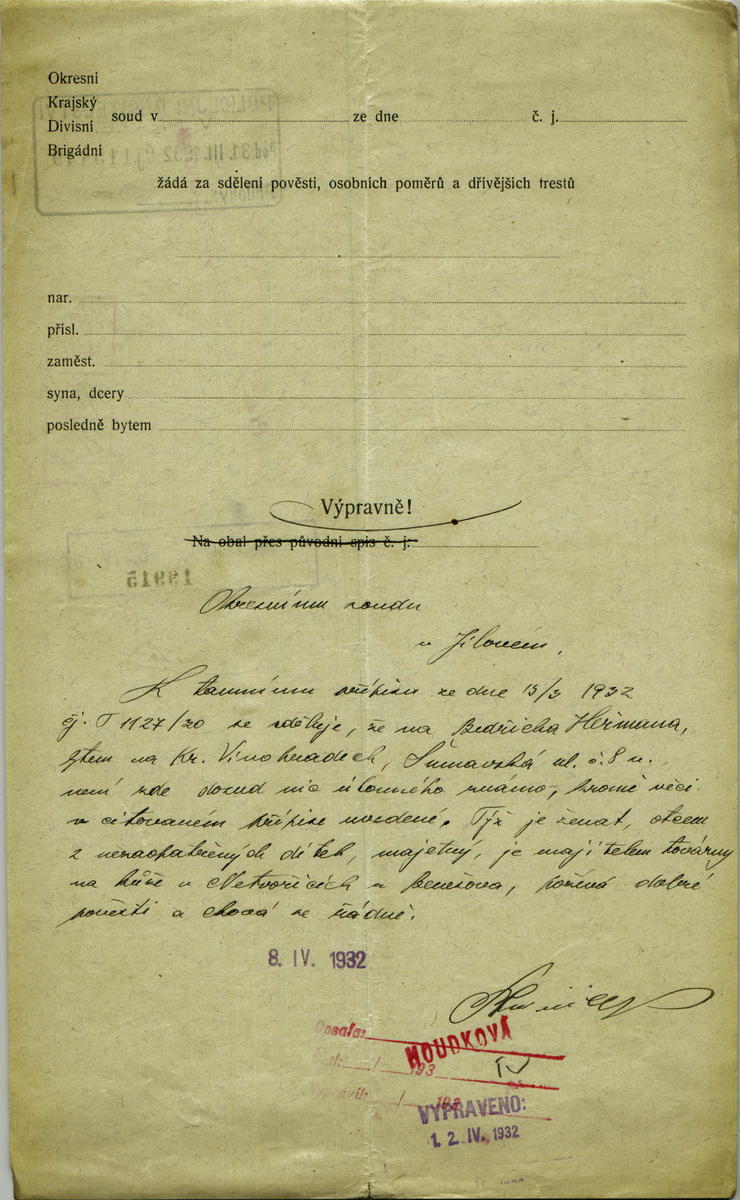 Okresní
Krajský
Divisní
Brigádní
soud v ze dne č. j.
žádá za sdělení pověsti, osobních poměrů a dřívějších trestů
nar.
přísl.
zaměst.
syna, dcery
posledně bytem
Výpravně!
Na obal přes původní spis č. j.
Okresnímu soudu
v Jílovém,
K tamnímu přípisu ze dne 15/3 1932
čj. T 1127/30 se sděluje, že na Bedřicha Heřmana,
bytem na Kr. Vinohradech, Šumavská ul. č. 8 n.,
není zde dosud nic úhonného známo, kromě věci
v citovaném přípise uvedené. Týž je ženat, otcem
2 nezaopatřených dětek, majetný, je majitelem továrny
na kůže v Netvořicích u Benešova, požívá dobré
pověsti a chová se řádně.
8. IV. 1932
Opsala:
HOUDKOVÁ
/ 193
IV
/ 193
VYPRAVENO:
1 2. IV. 1932